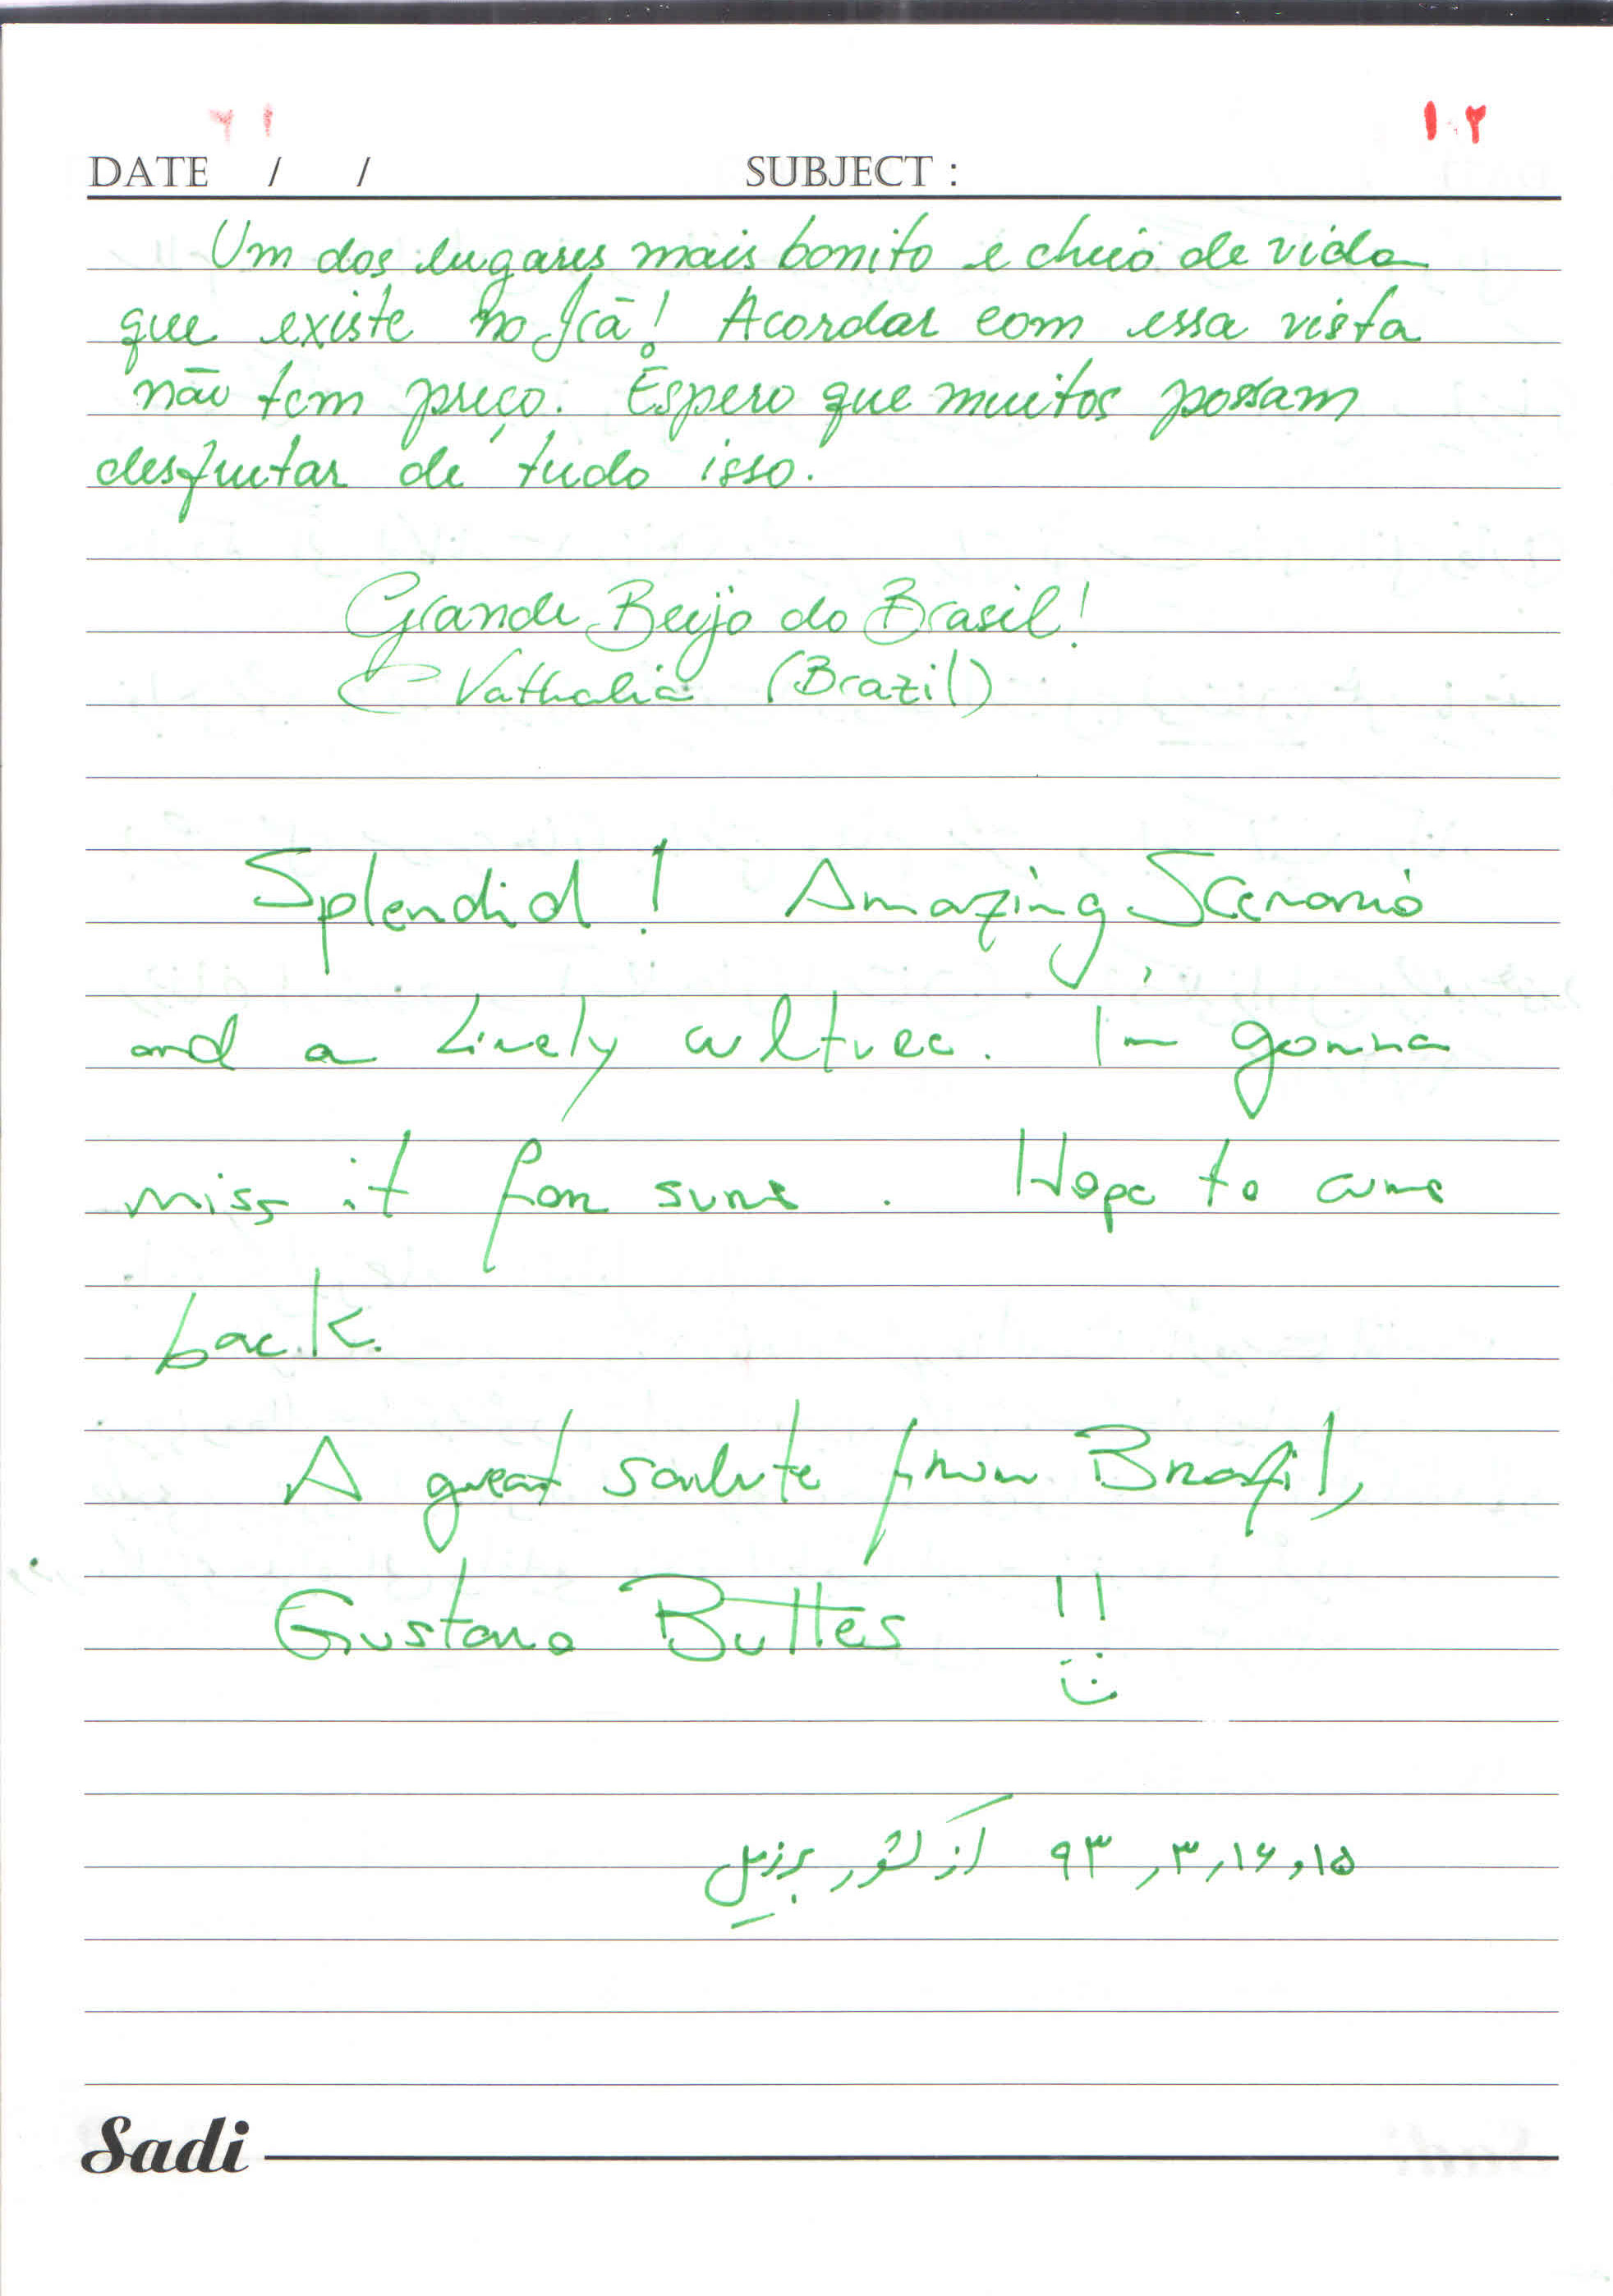 ۱۰۲
DATE / / SUBJECT :
Um dos lugares mais bonito e cheio de vida
que existe no Irã! Acordar com essa vista
não tem preço. Espero que muitos possam
desfrutar de tudo isso.
Grande Beijo do Brasil!
Nathalia (Brazil)
Splendid! Amazing Scenario,
and a Lively culture. I'm gonna
miss it for sure. Hope to come
back.
A great salute from Brazil,
Gustavo Buttes !!
۹۳,۳,۱۶,۱۵ از کشور برزیل
Sadi